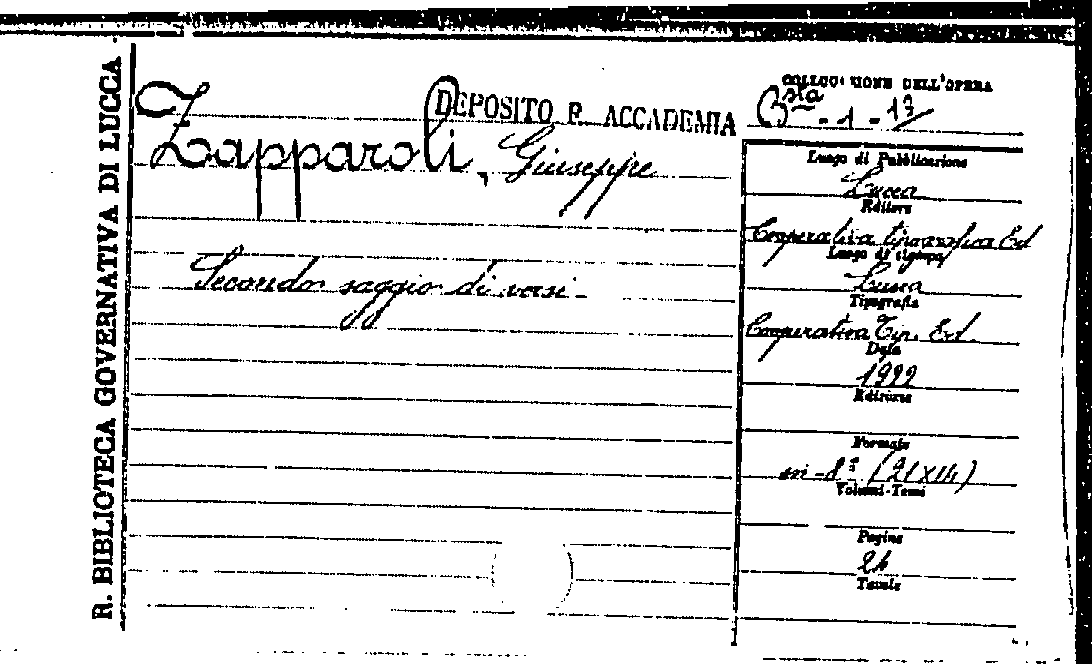 R. BIBLIOTECA GOVERNATIVA DI LUCCA
DEPOSITO R. ACCADEMIA
Zapparoli, Giuseppe
Secondo saggio di versi -
COLLOCAZIONE DELL'OPERA
Bta - 1 - 13
Luogo di Pubblicazione
Lucca
Editore
Cooperativa tipografica Ed
Luogo di stampa
Lucca
Tipografia
Cooperativa Tip. Ed.
Data
1922
Edizione
Formato
in-8º (21X14)
Volumi-Tomi
Pagine
24
Tavole